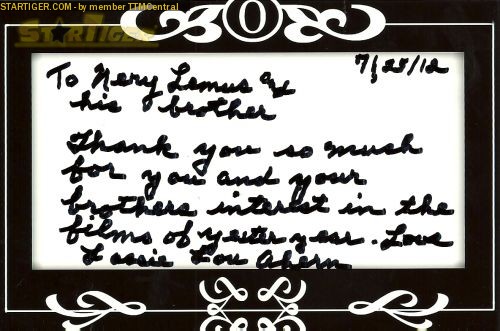 STARTIGER.COM - by member TTMCentral
STARTIGER
O
7/28/12
To Nery Lemus and
his brother
Thank you so much
for you and your
brothers interest in the
films of yester year. Love
Lassie Lou Ahern